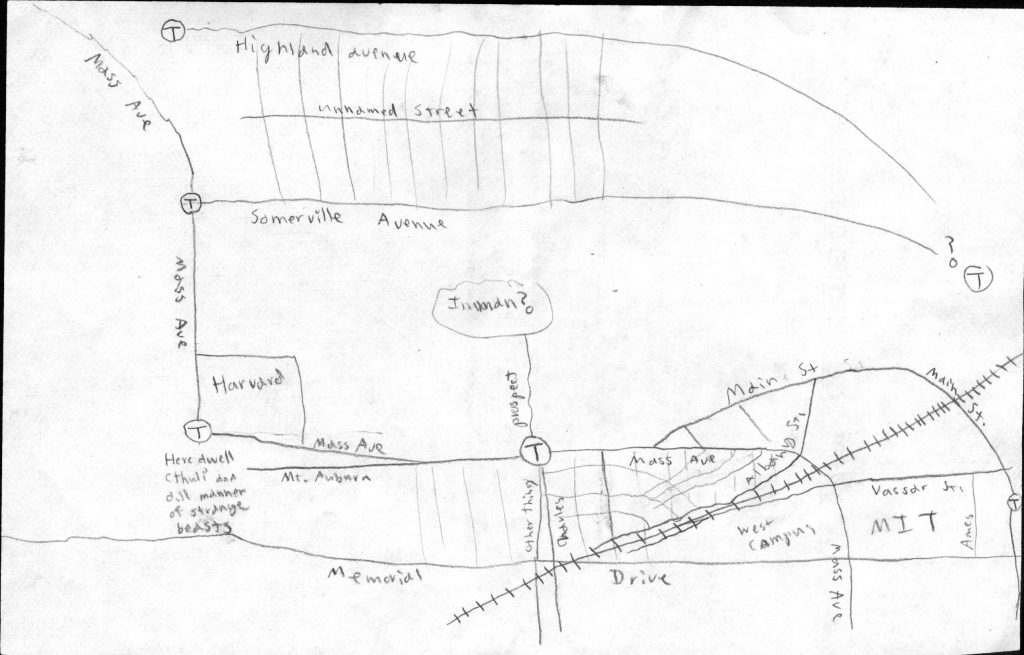 T
Highland avenue
Mass Ave
unnamed street
T
Somerville Avenue
?
T
Mass Ave
Inman?
Harvard
prospect
Main St
Main St.
T
Mass Ave
T
Mass Ave
Albany St.
Here dwell
Cthuli and
all manner
of strange
beasts
Mt. Auburn
other thing
Charles
Vassar St.
West
Campus
MIT
Ames
T
Memorial Drive
Mass Ave